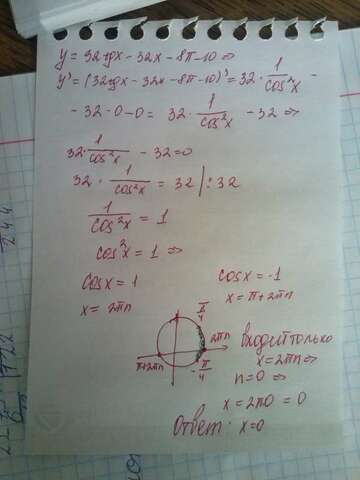 y = 32tgx - 32x - 8π - 10 ⇒
y' = (32tgx - 32x - 8π - 10)' = 32 · 1/cos²x -
- 32 - 0 - 0 = 32 · 1/cos²x - 32 ⇒
32 · 1/cos²x - 32 = 0
32 · 1/cos²x = 32 | : 32
1/cos²x = 1
cos²x = 1 ⇒
cosx = 1 cosx = -1
x = 2πn x = π + 2πn
π/4
2πn
π+2πn
-π/4
входит только
x = 2πn ⇒
n = 0 ⇒
x = 2π0 = 0
Ответ: x = 0